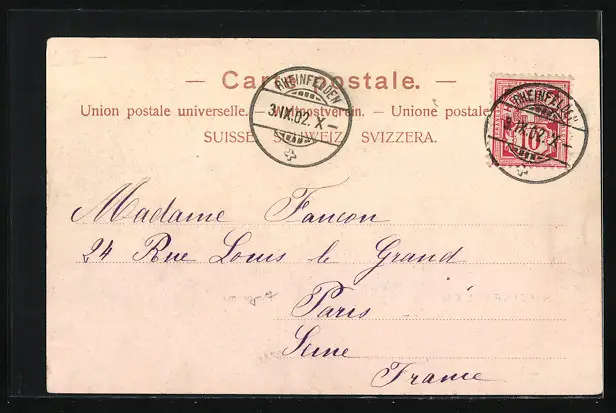 — Carte postale. —
Union postale universelle. — Weltpostverein. — Unione postale
SUISSE SCHWEIZ SVIZZERA.
RHEINFELDEN
3.IX.02.X—
RHEINFELDEN
3.IX.02.X—
10
Madame Faucon
24 Rue Louis le Grand
Paris
Seine
France